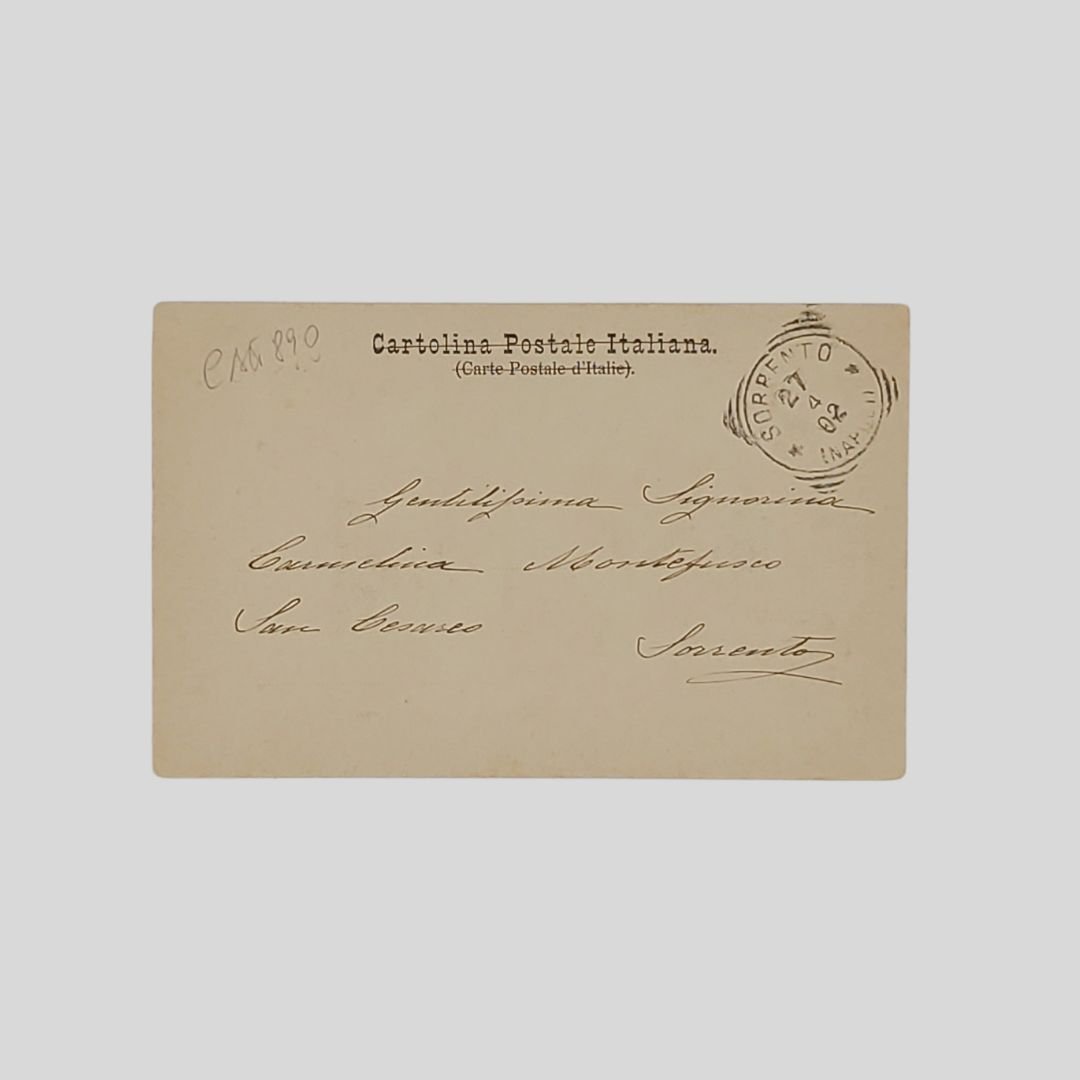 Cartolina Postale Italiana.
(Carte Postale d'Italie).
SORRENTO
27
4
02
Gentilissima Signorina
Carmelina Montefusco
San Cesareo
Sorrento